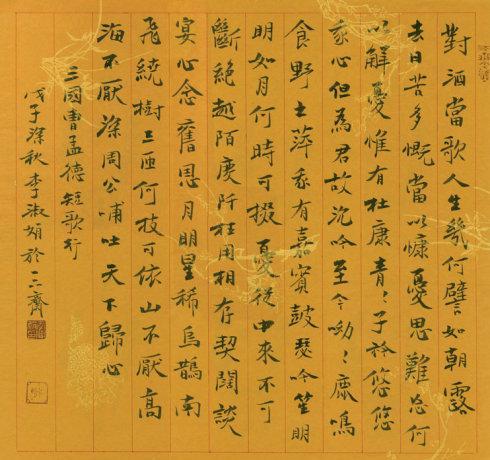 對酒當歌人生幾何譬如朝露
去日苦多慨當以慷憂思難忘何
以解憂惟有杜康青々子衿悠悠
我心但為君故沉吟至今呦々鹿鳴
食野之萍我有嘉賓鼓瑟吟笙明
明如月何時可掇憂從中來不可
斷絕越陌度阡枉用相存契闊談
宴心念舊恩月明星稀烏鵲南
飛繞樹三匝何枝可依山不厭高
海不厭深周公哺吐天下歸心
三國曹孟德短歌行
戊子深秋李淑娟於齋